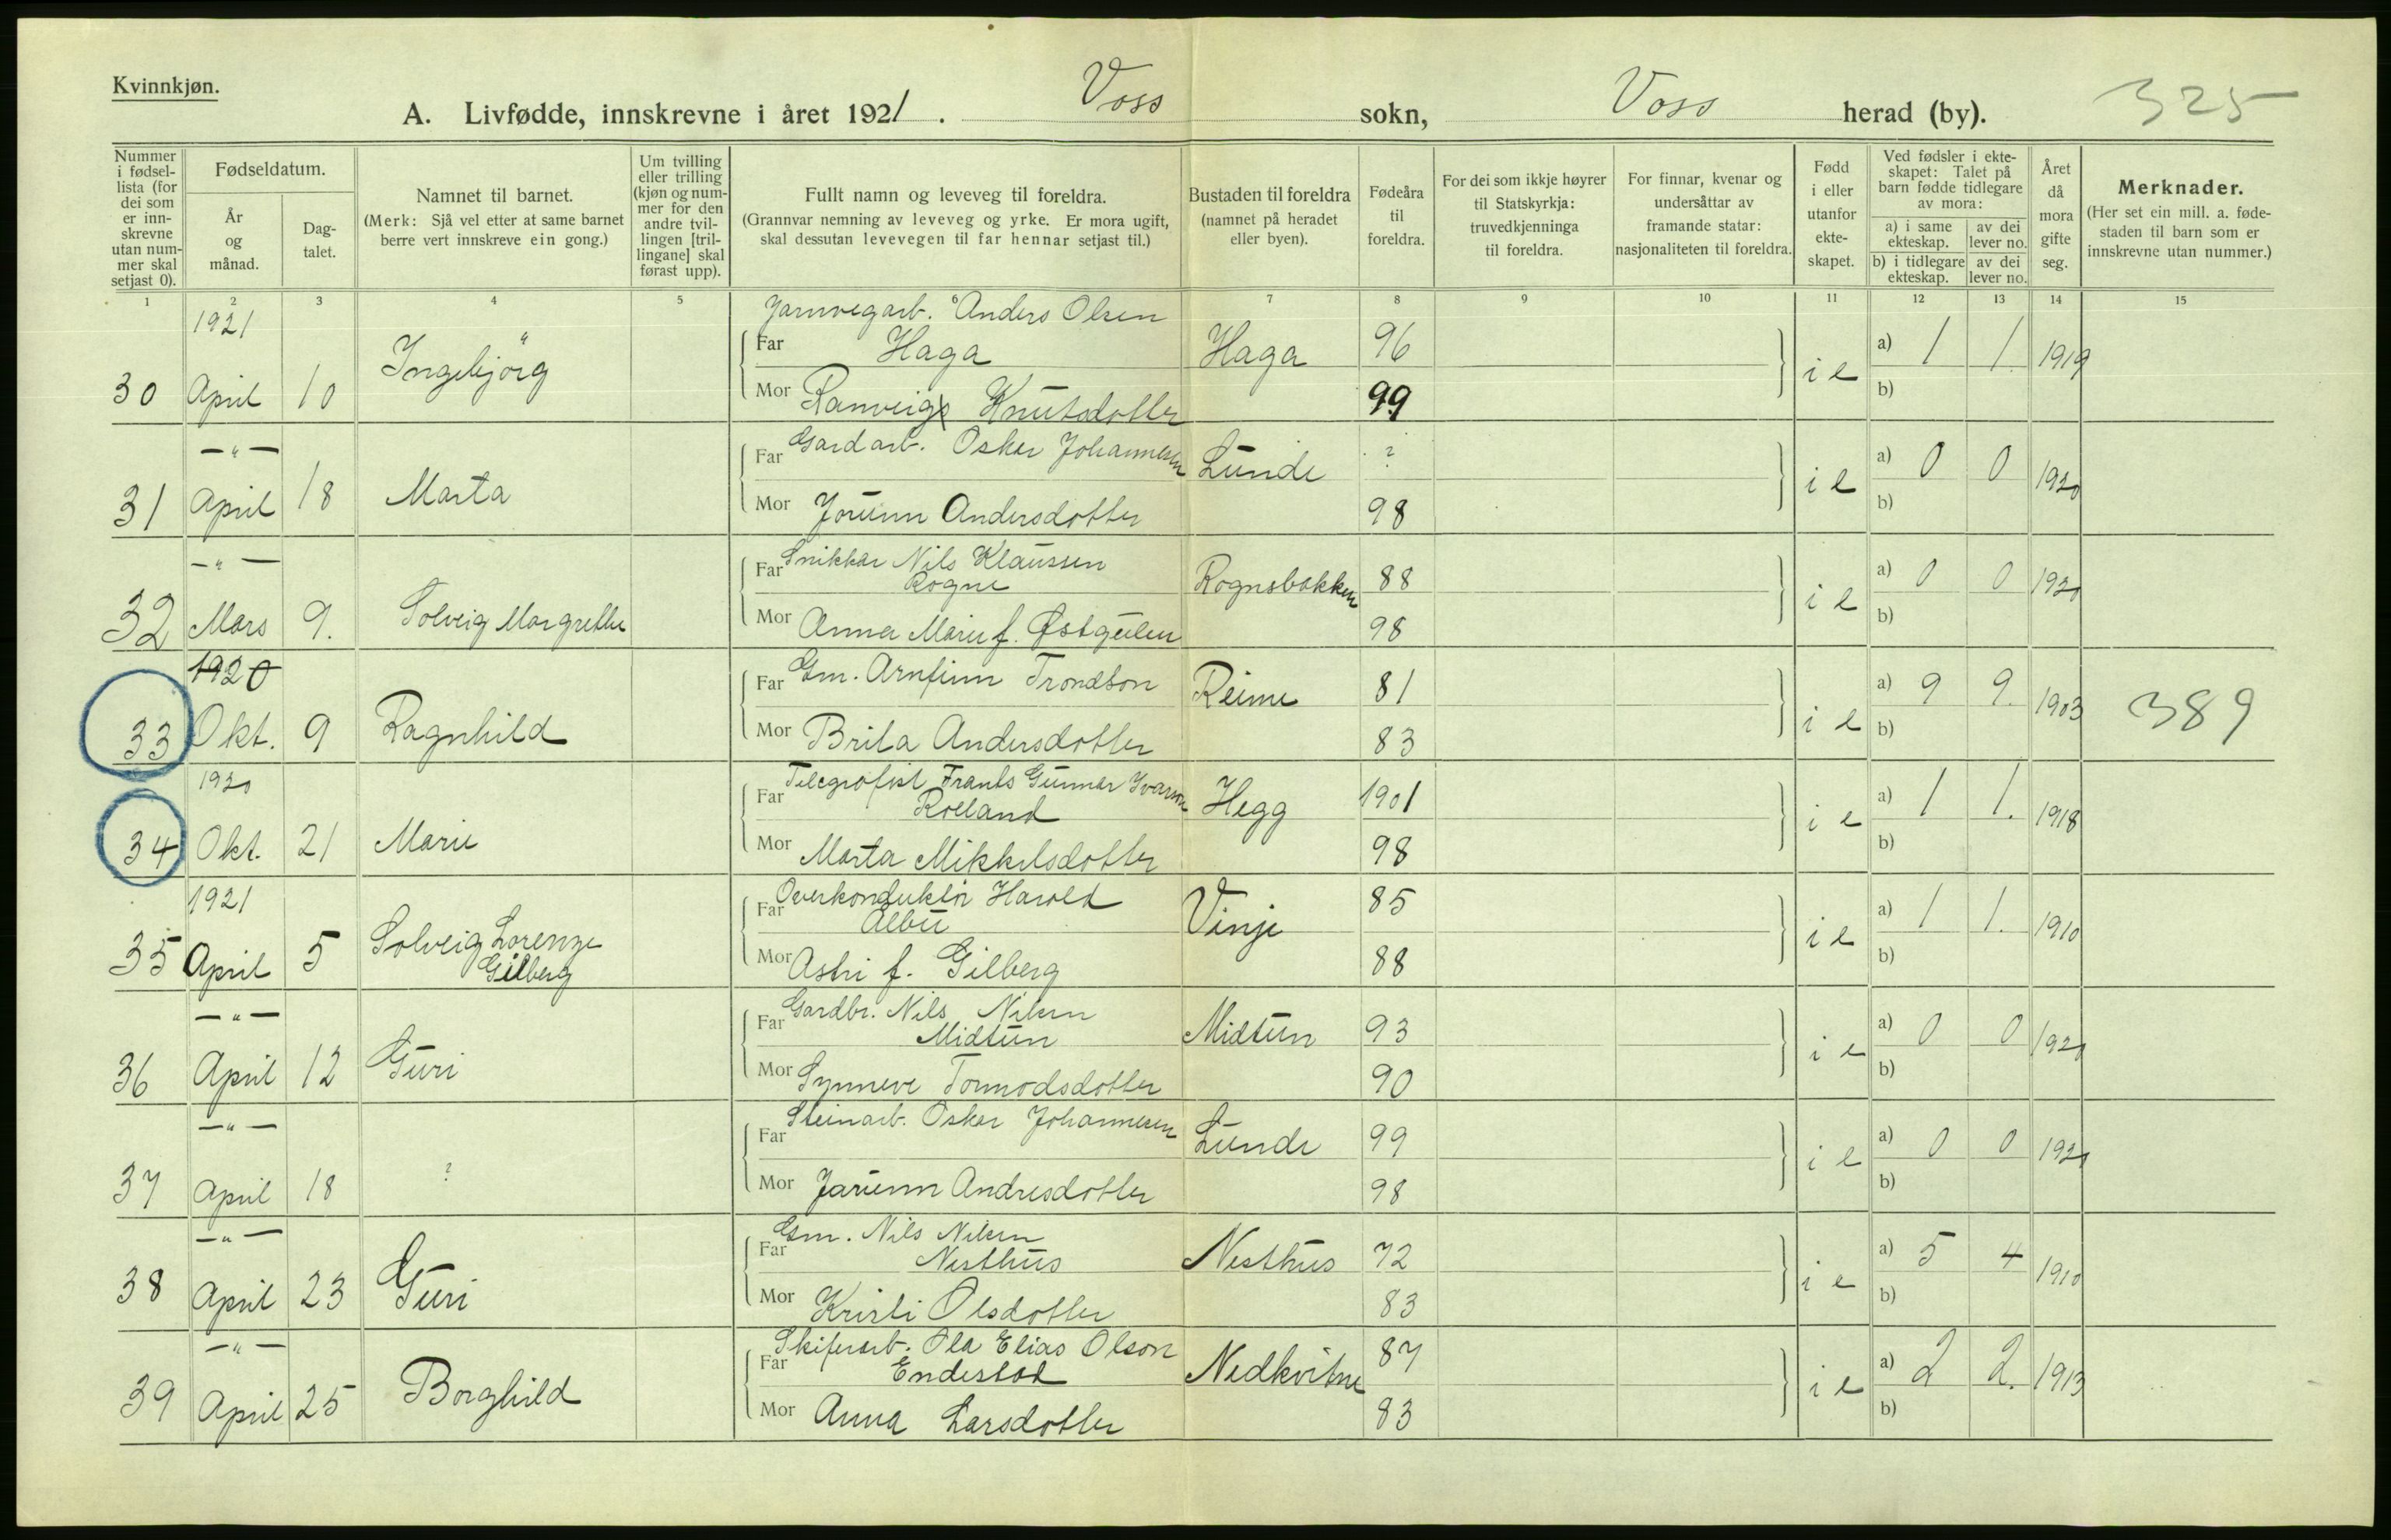 Kvinnkjøn.
A. Livfødde, innskrevne i året 1921. Voss sokn, Voss herad (by). 325
Nummer i fødsel-lista (for dei som er inn-skrevne utan num-mer skal setjast 0).
Fødseldatum.
År og månad.
Dag-talet.
Namnet til barnet.
(Merk: Sjå vel etter at same barnet berre vert innskreve ein gong.)
Um tvilling eller trilling (kjøn og num-mer for den andre tvil-lingen [tril-lingane] skal førast upp).
Fullt namn og leveveg til foreldra.
(Grannvar nemning av leveveg og yrke. Er mora ugift, skal dessutan levevegen til far hennar setjast til.)
Bustaden til foreldra (namnet på heradet eller byen).
Fødeåra til foreldra.
For dei som ikkje høyrer til Statskyrkja: truvedkjenninga til foreldra.
For finnar, kvenar og undersåttar av framande statar: nasjonaliteten til foreldra.
Fødd i eller utanfor ekte-skapet.
Ved fødsler i ekte-skapet: Talet på barn fødde tidlegare av mora:
a) i same ekteskap.
av dei lever no.
b) i tidlegare ekteskap.
av dei lever no.
Året då mora gifte seg.
Merknader.
(Her set ein mill. a. føde-staden til barn som er innskrevne utan nummer.)
1 2 3 4 5 6 7 8 9 10 11 12 13 14 15
1921 Jarnvegarb. Anders Olsen
Far Haga Haga 96 a) 1 1 1919
30 April 10 Ingebjörg i e
Mor Ranveig Knutsdotter 99 b)
—"— Far Gardarb. Oskar Johannesen Lunde ? a) 0 0 1920
31 April 18 Marta i e
Mor Jorunn Andersdotter 98 b)
—"— Far Snikkar Nils Klaussen
Rogne Rognsbakken 88 a) 0 0 1920
32 Mars 9. Solveig Margrethe i e
Mor Anna Marie f. Østgulen 98 b)
1920 Far Gm. Arnfinn Trondson Reime 81 a) 9 9. 1903 389
33 Okt. 9 Ragnhild i e
Mor Brita Andersdotter 83 b)
1920 Far Telegrafist Frants Gunnar Ivarson
Rolland Hegg 1901 a) 1 1. 1918
34 Okt. 21 Marie i e
Mor Marta Mikkelsdotter 98 b)
1921 Far Overkonduktör Harold
Ålbu Vinje 85 a) 1 1. 1910
35 April 5 Solveig Lorenze
Gilberg i e
Mor Astri f. Gilberg 88 b)
—"— Far Gardbr. Nils Nilsen
Midtun Midtun 93 a) 0 0 1920
36 April 12 Guri i e
Mor Synneve Tormodsdotter 90 b)
—"— Far Steinarb. Oskar Johannesen Lunde 99 a) 0 0 1920
37 April 18 ? i e
Mor Jarunn Andresdotter 98 b)
—"— Far Gm. Nils Nilsen
Nesthus Nesthus 72 a) 5 4 1910
38 April 23 Guri i e
Mor Kristi Olsdotter 83 b)
—"— Far Skiferarb. Ola Elias Olson
Endestad Nedkvitne 87 a) 2 2. 1913
39 April 25 Borghild i e
Mor Anna Larsdotter 83 b)